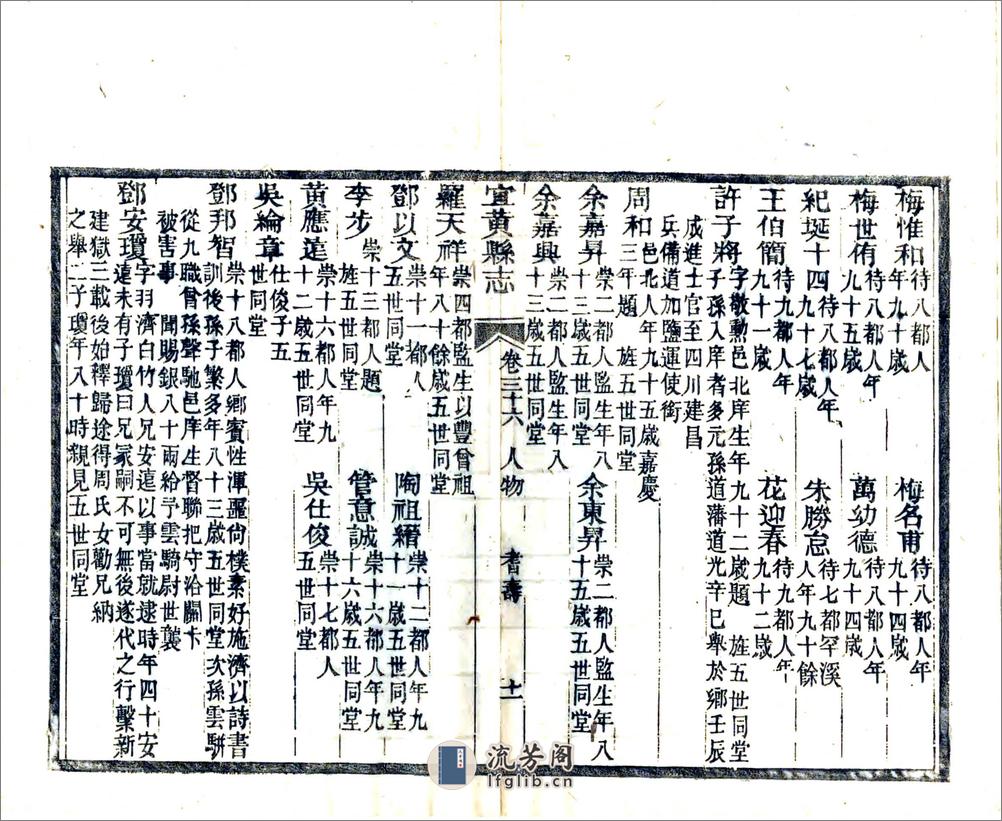 梅惟和待八都人年九十歲 梅名甫待八都人年九十四歲
梅世侑待八都人年九十五歲 萬幼德待八都人年九十四歲
紀埏十四待八都人年九十七歲 朱勝怠待七都罕溪人年九十餘
王伯簡待九都人年九十一歲 花迎春待九都人年九十二歲
許子將字敬勳邑北庠生年九十二歲題 旌五世同堂子孫入庠者多元孫道藩道光辛巳舉於鄉壬辰
成進士官至四川建昌兵備道加鹽運使銜
周和邑北人年九十五歲嘉慶三年題 旌五世同堂
余嘉昇崇二都人監生年八十三歲五世同堂 余東昇崇二都人監生年八十五歲五世同堂
余嘉興崇二都人監生年八十三歲五世同堂
宜黃縣志 卷三十六 人物 耆壽 十一
羅天祥崇四都監生以豐曾祖年八十餘歲五世同堂
鄧以文崇十一都人五世同堂 陶祖縉崇十二都人年九十一歲五世同堂
李步崇十三都人題旌五世同堂 管意誠崇十六都人年九十六歲五世同堂
黄應逵崇十六都人年九十二歲五世同堂 吳仕俊崇十七都人五世同堂
吳綸章仕俊子五世同堂
鄧邦智崇十八都人鄉賓性渾噩尙樸素好施濟以詩書訓後孫子繁多年八十三歲五世同堂次孫雲駢
從九職曾孫聲馳邑庠生督聯把守沿關卡被害事 聞賜銀八十兩給予雲騎尉世襲
鄧安瓊字羽濟白竹人兄安遠以事當就逮時年四十安遠未有子瓊曰兄冢嗣不可無後遂代之行繫新
建獄三載後始釋歸途得周氏女勸兄納之舉二子瓊年八十時親見五世同堂
流芳阁
lfglib.cn